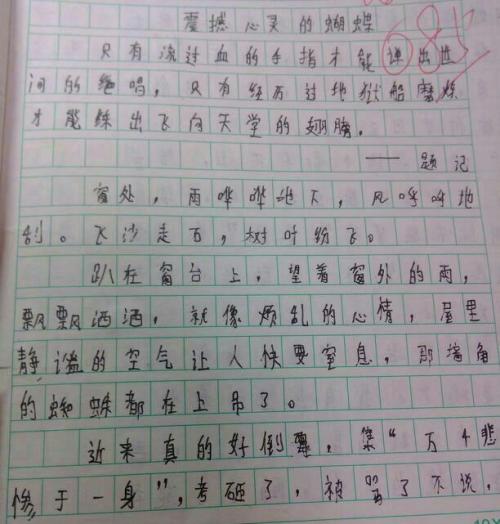 震撼心灵的蝴蝶
85
只有流过血的手指才能弹出世
间的绝唱，只有经历过地狱般磨炼
才能练出飞向天堂的翅膀。
——题记
窗处，雨哗哗地下，风呼呼地
刮。飞沙走石，树叶纷飞。
趴在窗台上，望着窗外的雨，
飘飘洒洒，就像烦乱的心情，屋里
静谧的空气让人快要窒息，那墙角
的蜘蛛都在上吊了。
近来真的好倒霉，集“万千悲
惨于一身”，考砸了，被骂了不说，